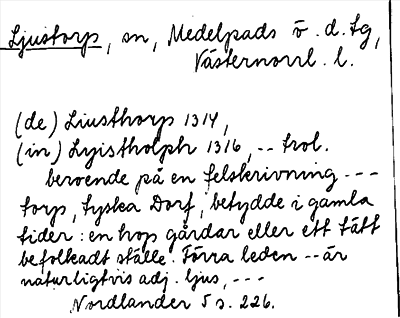 Ljustorp, sn, Medelpads ö. d. tg,
Västernorrl. l.
(de) Liusthorp 1314,
(in) Lyistholph 1316, -- trol.
beroende på en felskrivning ---
torp, tyska Dorf, betydde i gamla
tider: en hop gårdar eller ett tätt
befolkadt ställe. Förra leden -- är
naturligtvis adj. ljus, ---
Nordlander 5 s. 226.